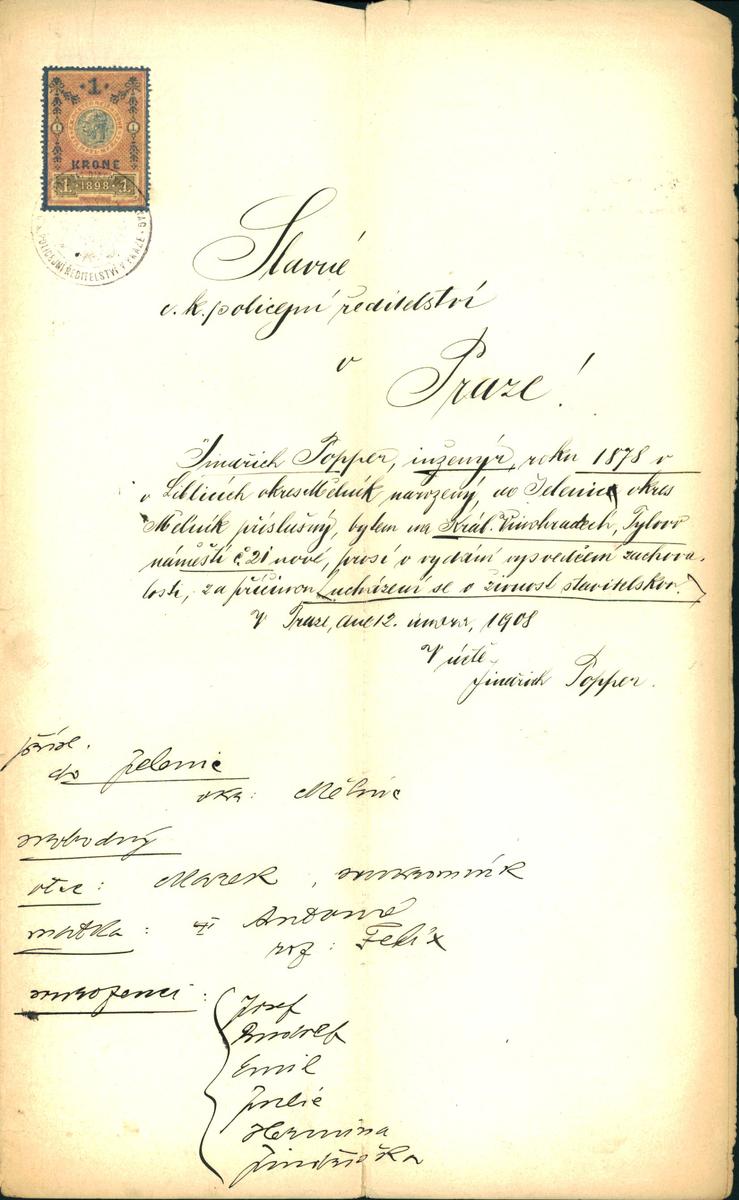 1
KRONE
1 1898 1
C. K. POLICEJNÍ ŘEDITELSTVÍ V PRAZE
Slavné
c. k. policejní ředitelství
v
Praze!
Jindřich Popper, inženýr, roku 1878 v
v Liblicích okres Mělník narozený, do Jelenic okres
Mělník příslušný, bytem na Král. Vinohradech, Tylovo
náměstí č. 21 nové, prosí o vydání vysvědčení zachova-
losti, za příčinou ucházení se o živnost stavitelskou.
V Praze, dne 12. února, 1908
V úctě
Jindřich Popper.
přísl.
do Jelenic
okr: Mělnic
svobodný
otec: Marek, soukromník
matka: Antonie
roz: Felix
sourozenci:
Josef
Rudolf
Emil
Julie
Hermina
Jindřiška